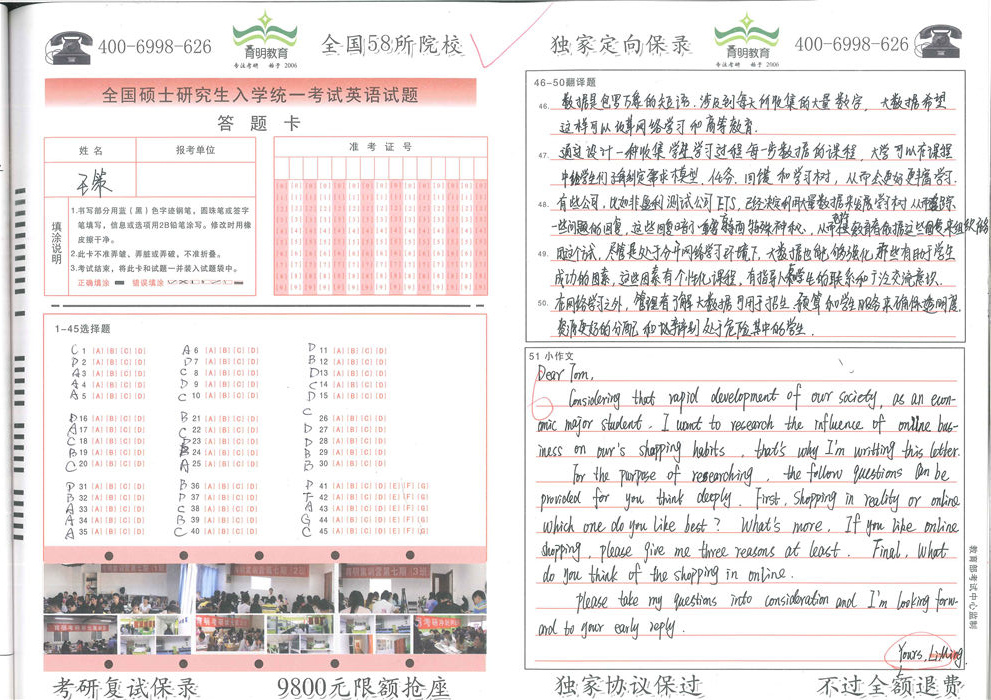 400-6998-626
育明教育
专注考研 始于 2006
全国58所院校
独家定向保录
育明教育
专注考研 始于 2006
400-6998-626
全国硕士研究生入学统一考试英语试题
答 题 卡
姓 名
报考单位
王策
准 考 证 号
填涂说明
1.书写部分用蓝(黑)色字迹钢笔,圆珠笔或签字
笔填写,信息或选项用2B铅笔涂写。修改时用橡
皮擦干净。
2.此卡不准弄皱,弄脏或弄破,不准折叠。
3.考试结束,将此卡和试题一并装入试题袋中。
正确填涂
错误填涂
1-45选择题
C 1 [A] [B] [C] [D]
A 6 [A] [B] [C] [D]
D 11 [A] [B] [C] [D]
D 2 [A] [B] [C] [D]
D 7 [A] [B] [C] [D]
B 12 [A] [B] [C] [D]
A 3 [A] [B] [C] [D]
C 8 [A] [B] [C] [D]
D 13 [A] [B] [C] [D]
A 4 [A] [B] [C] [D]
D 9 [A] [B] [C] [D]
C 14 [A] [B] [C] [D]
A 5 [A] [B] [C] [D]
C 10 [A] [B] [C] [D]
D 15 [A] [B] [C] [D]
D 16 [A] [B] [C] [D]
B 21 [A] [B] [C] [D]
C 26 [A] [B] [C] [D]
A 17 [A] [B] [C] [D]
C 22 [A] [B] [C] [D]
D 27 [A] [B] [C] [D]
C 18 [A] [B] [C] [D]
23 [A] [B] [C] [D]
D 28 [A] [B] [C] [D]
B 19 [A] [B] [C] [D]
24 [A] [B] [C] [D]
B 29 [A] [B] [C] [D]
C 20 [A] [B] [C] [D]
A 25 [A] [B] [C] [D]
B 30 [A] [B] [C] [D]
D 31 [A] [B] [C] [D]
B 36 [A] [B] [C] [D]
41 [A] [B] [C] [D] [E] [F] [G]
B 32 [A] [B] [C] [D]
D 37 [A] [B] [C] [D]
42 [A] [B] [C] [D] [E] [F] [G]
A 33 [A] [B] [C] [D]
C 38 [A] [B] [C] [D]
A 43 [A] [B] [C] [D] [E] [F] [G]
A 34 [A] [B] [C] [D]
B 39 [A] [B] [C] [D]
G 44 [A] [B] [C] [D] [E] [F] [G]
A 35 [A] [B] [C] [D]
C 40 [A] [B] [C] [D]
C 45 [A] [B] [C] [D] [E] [F] [G]
考研复试保录
9800元限额抢座
46-50翻译题
46. 数据是包罗万象的短语,涉及到每天所收集的大量数字,大数据希望
这样可以改革网络学习和高等教育.
47. 通过设计一种收集学生学习过程每一步数据的课程,大学可以在课程
中给学生们制定需求模型,任务,回馈和学习材,从而会更好更丰富学习.
48. 有些公司,比如非盈利测试公司ETS,已经决定利用大量数据来发展学习材
一些问题的回复,这些回复
49. 尽管是处于分开网络学习环境下,大数据也能够强化那些有助于学生
成功的因素,这些因素有个性化课程,有指导人和学生的联系和广泛交流意识.
50. 在网络学习之外,管理者了解大数据可用于招生,预算和学生服务来确保透明度,
资源更好的分配和协辨别处于危险其中的学生.
51 小作文
Dear Tom,
Considering that rapid development of our society, as an econ-
omic major student, I want to research the influence of online bus-
iness on our's shopping habits, that's why I'm writting this letter.
For the purpose of researching, the follow questions can be
provided for you think deeply. First, shopping in reality or online
which one do you like best? What's more, If you like online
shopping, please give me three reasons at least. Final, What
do you think of the shopping in online.
Please take my questions into consideration and I'm looking forw-
ard to your early reply.
Yours, Li Ming
教育部考试中心监制
独家协议保过
不过全额退费